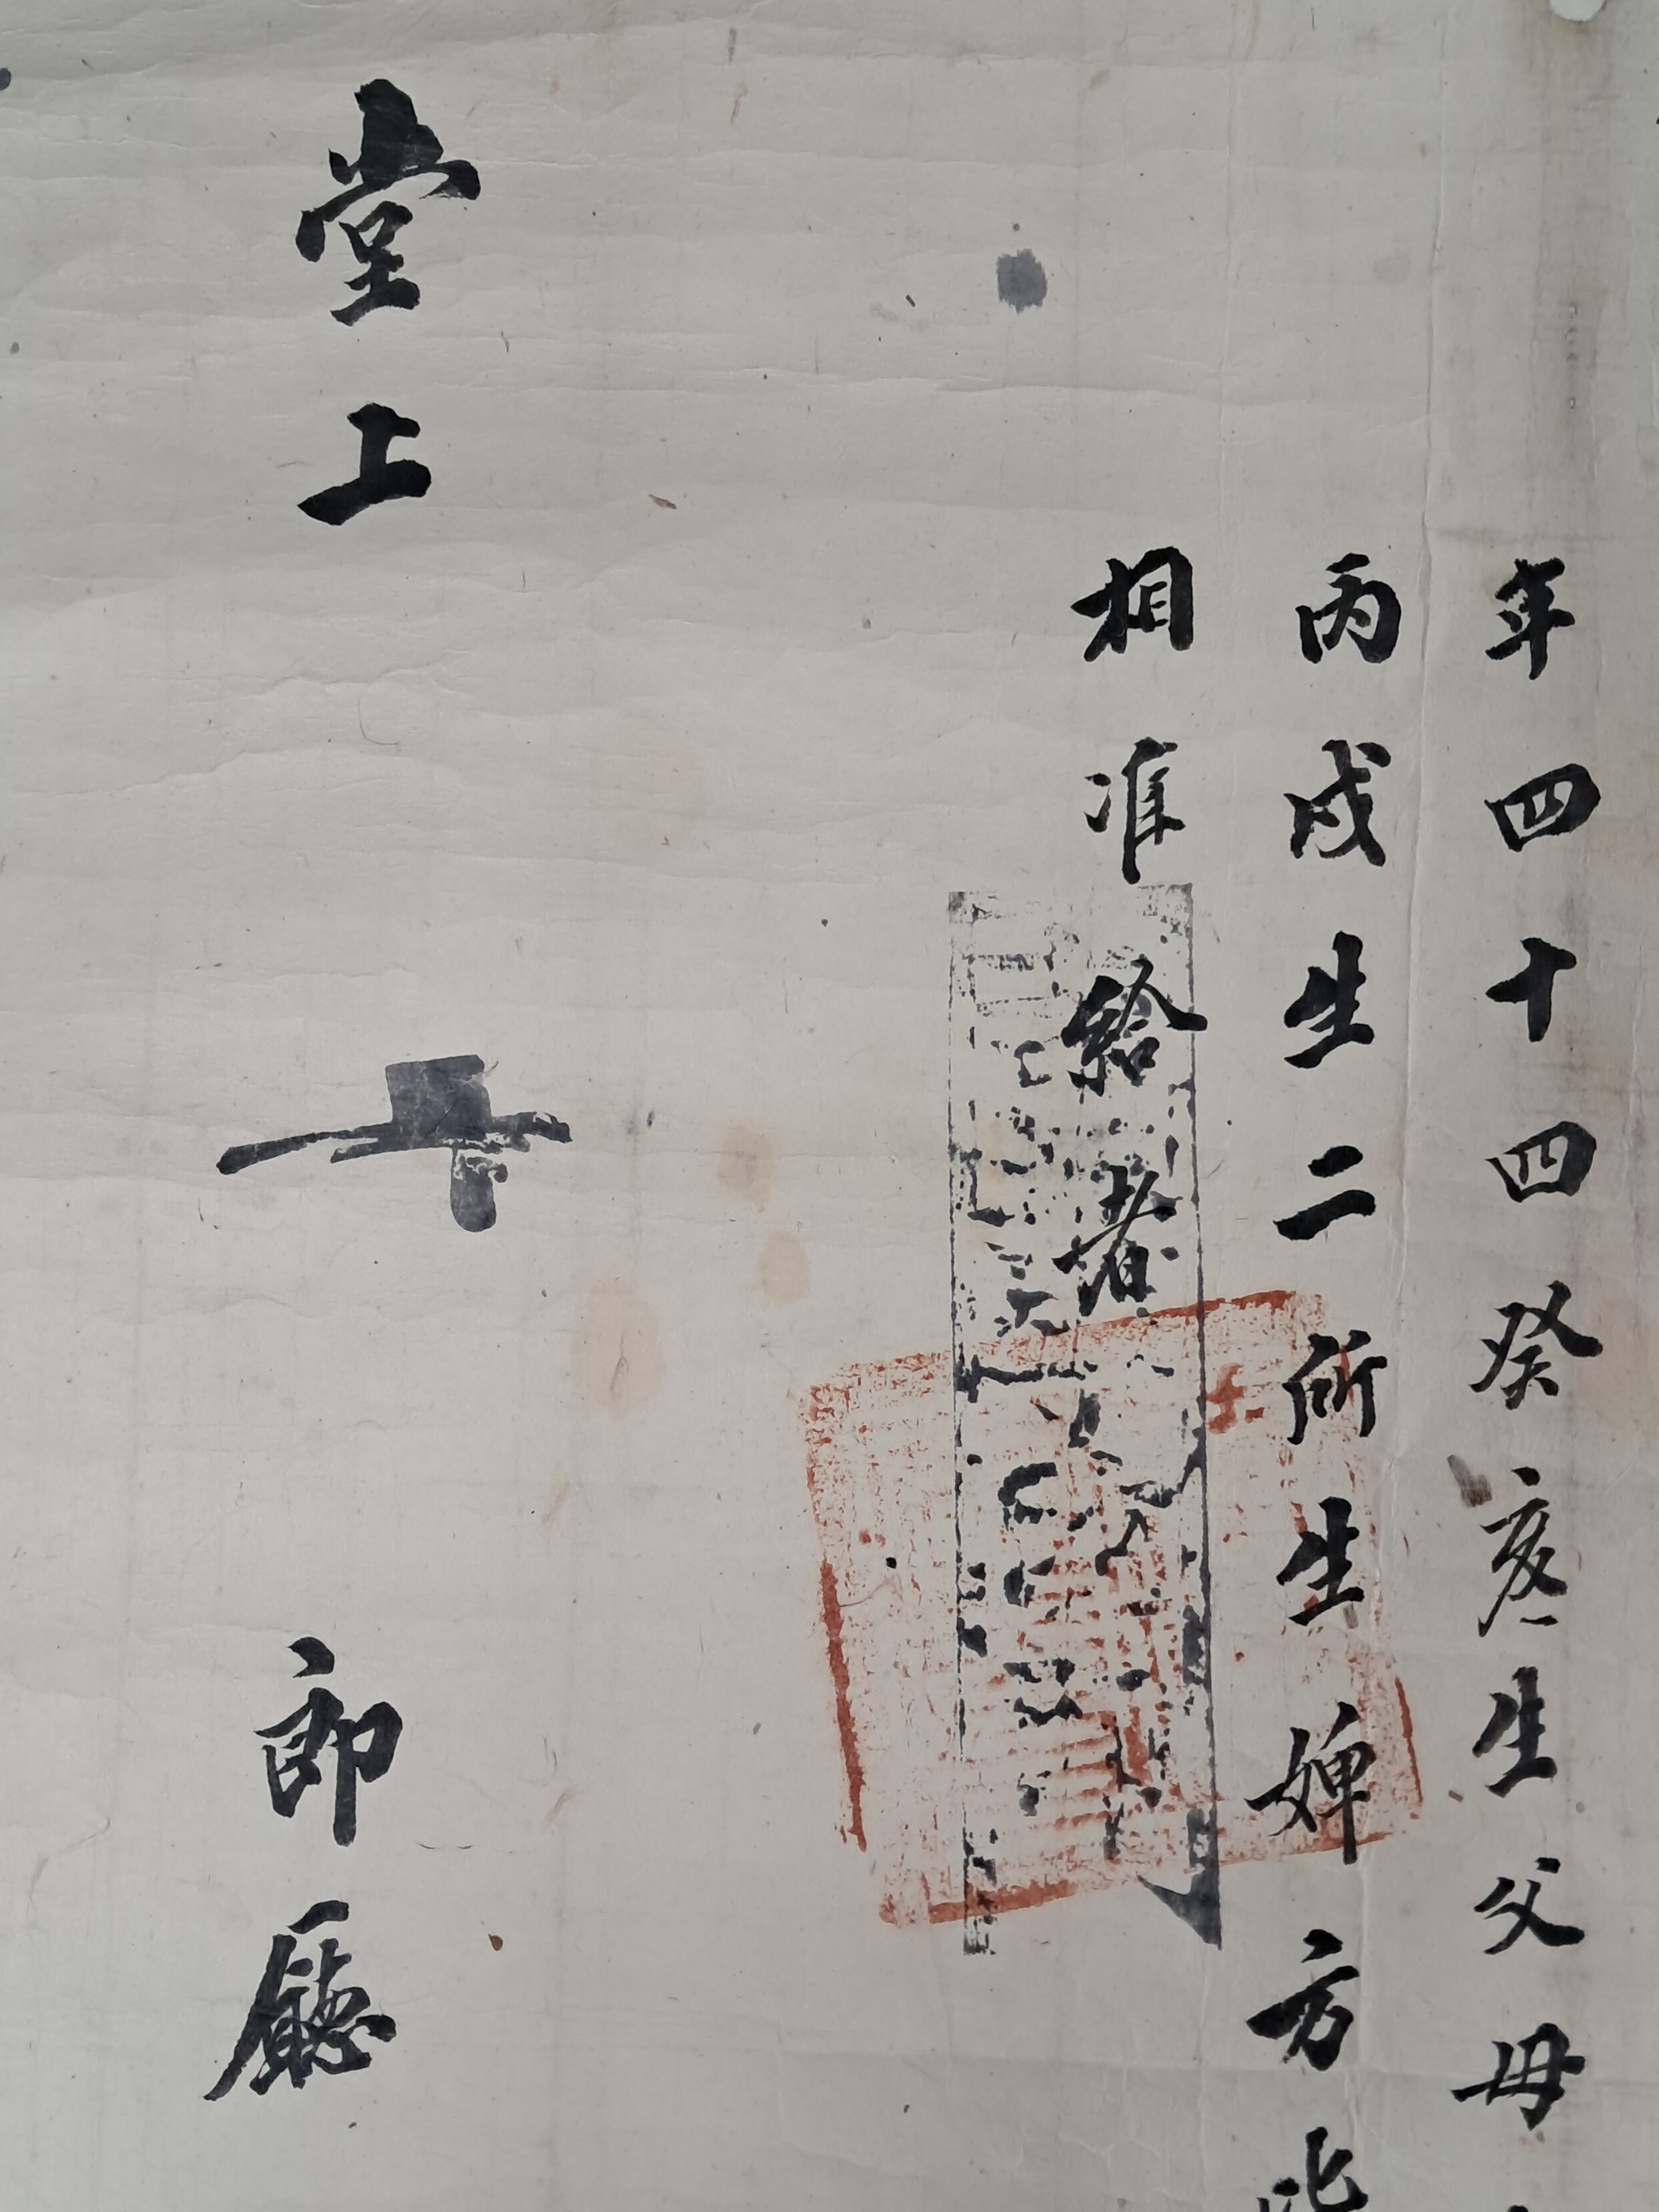 年四十四癸亥生父母
丙戌生二所生婢方
相准給者
堂上
郎廳